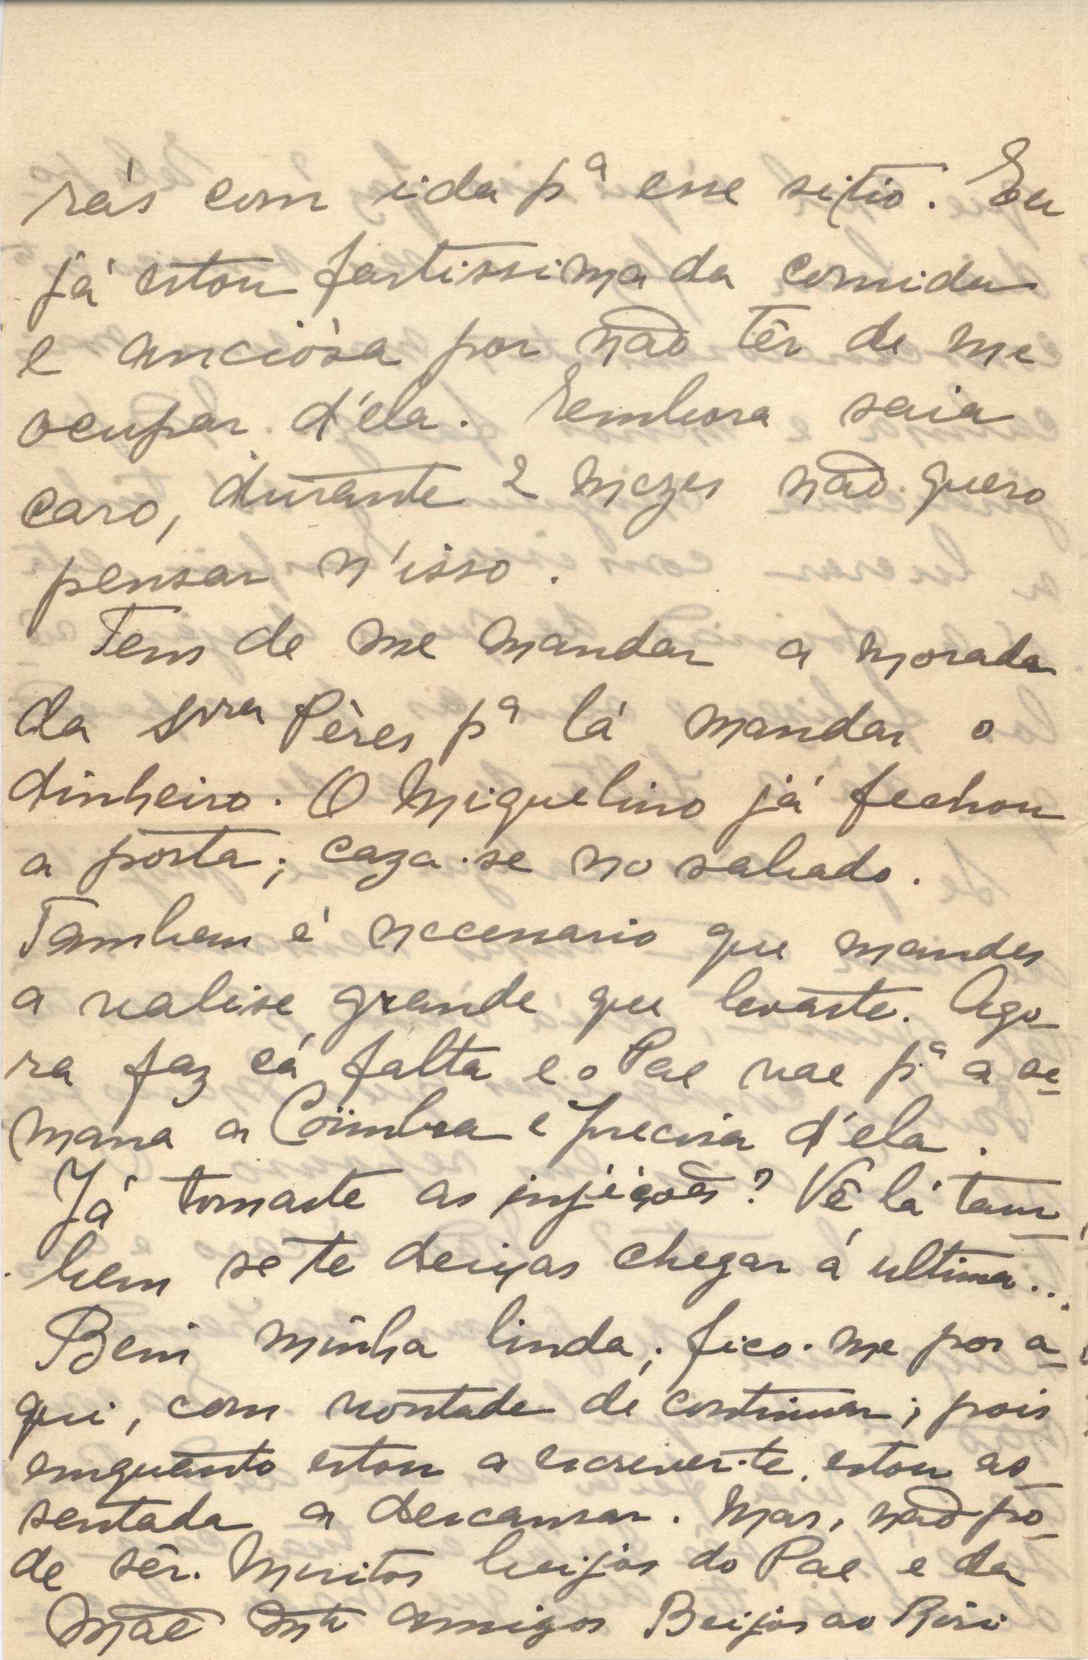 rás com ida pª esse sitio. Eu
já estou fartissima da comida
e anciósa por não têr de me
ocupar d'ela. Embora saia
caro, durante 2 mezes não quero
pensar n'isso.
Tens de me mandar a morada
da Snra Péres pª lá mandar o
dinheiro. O Miguelino já fechou
a porta; caza-se no sabado.
Tambem é necessario que mandes
a valise grande que levaste. Ago-
ra faz cá falta e o Pae vae pª a se-
mana a Coimbra e precisa d'ela.
Já tomaste as injéçoẽs? Vê lá tam-
bem se te deixas chegar á ultima...
Bem minha linda, fico-me por a-
qui, com vontade de continuar; pois
emquanto estou a escrever-te, estou as-
sentada a descansar. Mas, não pó-
de sêr. Muitos beijos do Pae e da
Mãe mtº amigos Beijos ao